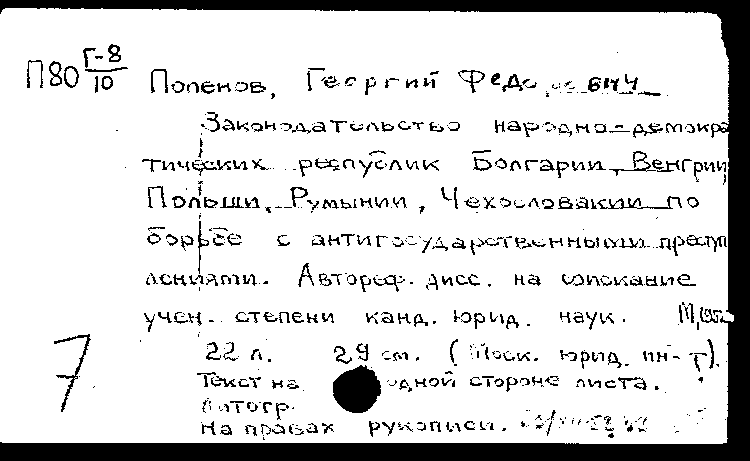 П80 Г-8/10 Поленов, Георгий Федорович
Законодательство народно-демокра
тических республик Болгарии, Венгрии,
Польши, Румынии, Чехословакии по
борьбе с антигосударственными преступ
лениями. Автореф. дисс. на соискание
учен. степени канд. юрид. наук. М, 1952
22 л. 29 см. (Моск. юрид. ин-т).
7 Текст на одной стороне листа.
Литогр.
На правах рукописи.